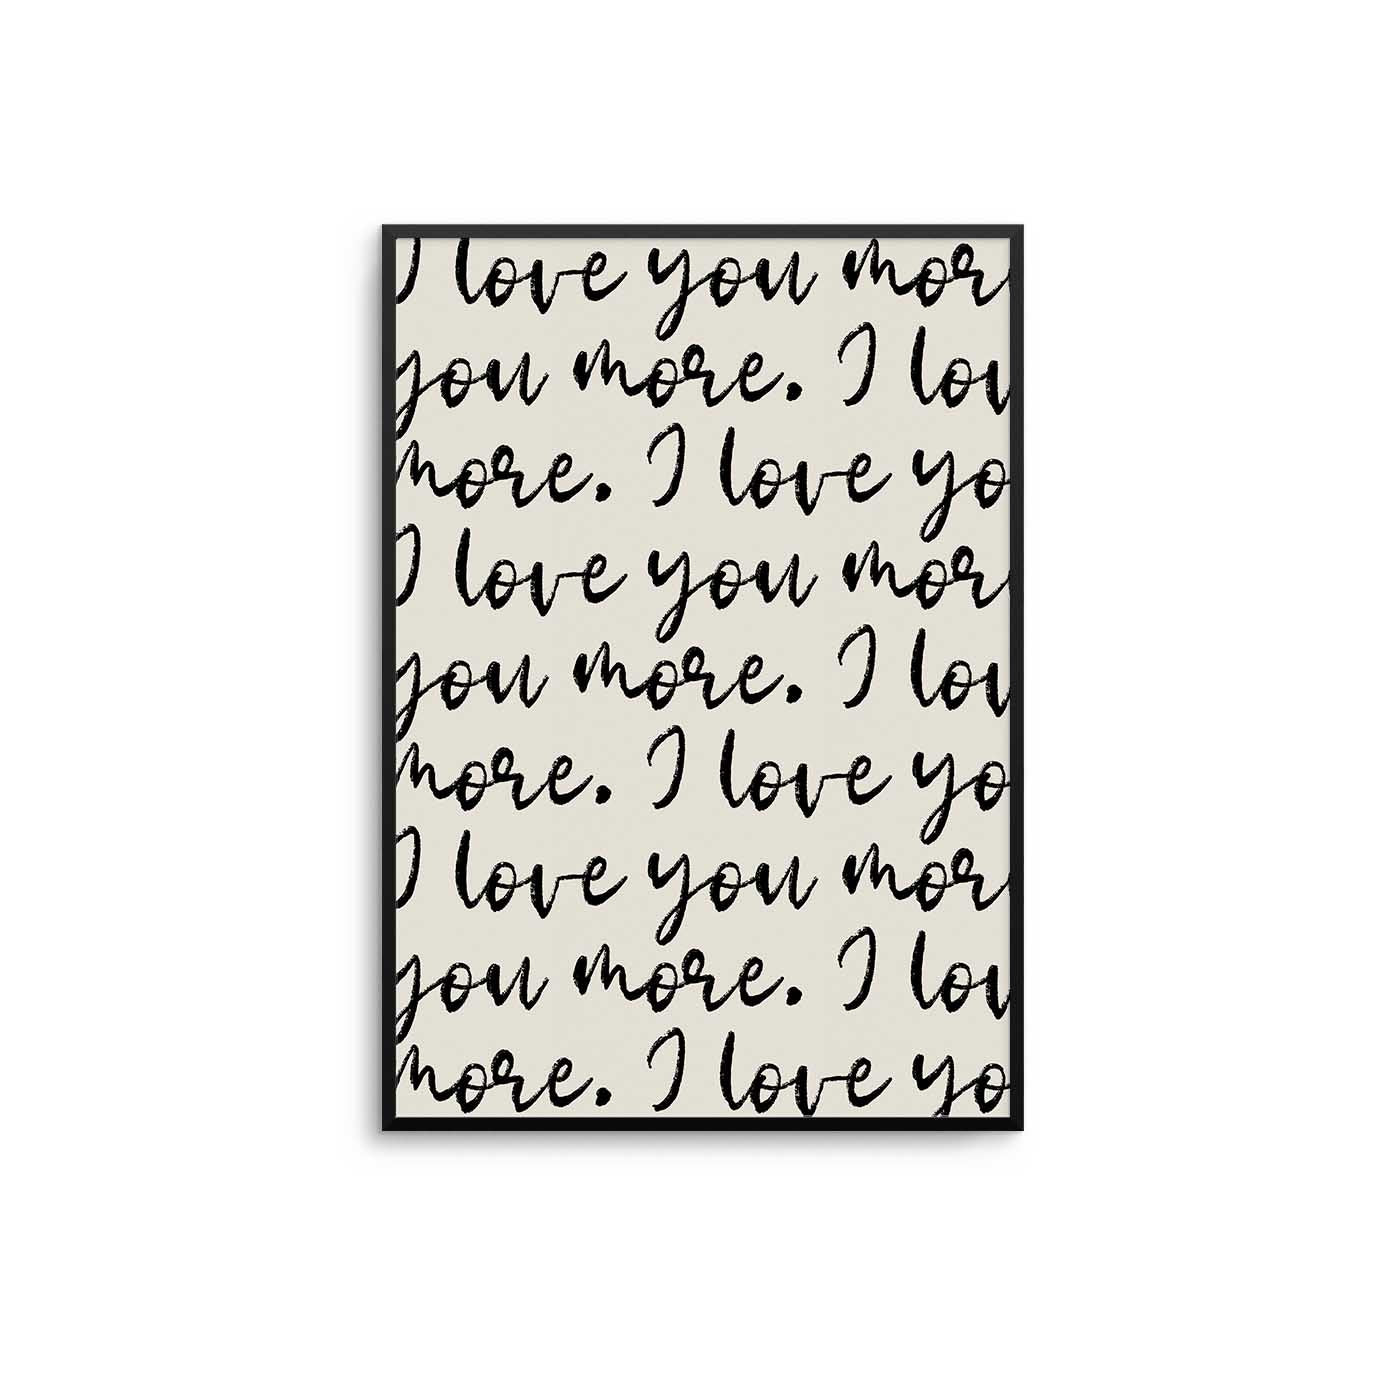 I love you mor
you more. I lov
more. I love yo
I love you mor
you more. I lov
more. I love yo
I love you mor
you more. I lov
more. I love yo